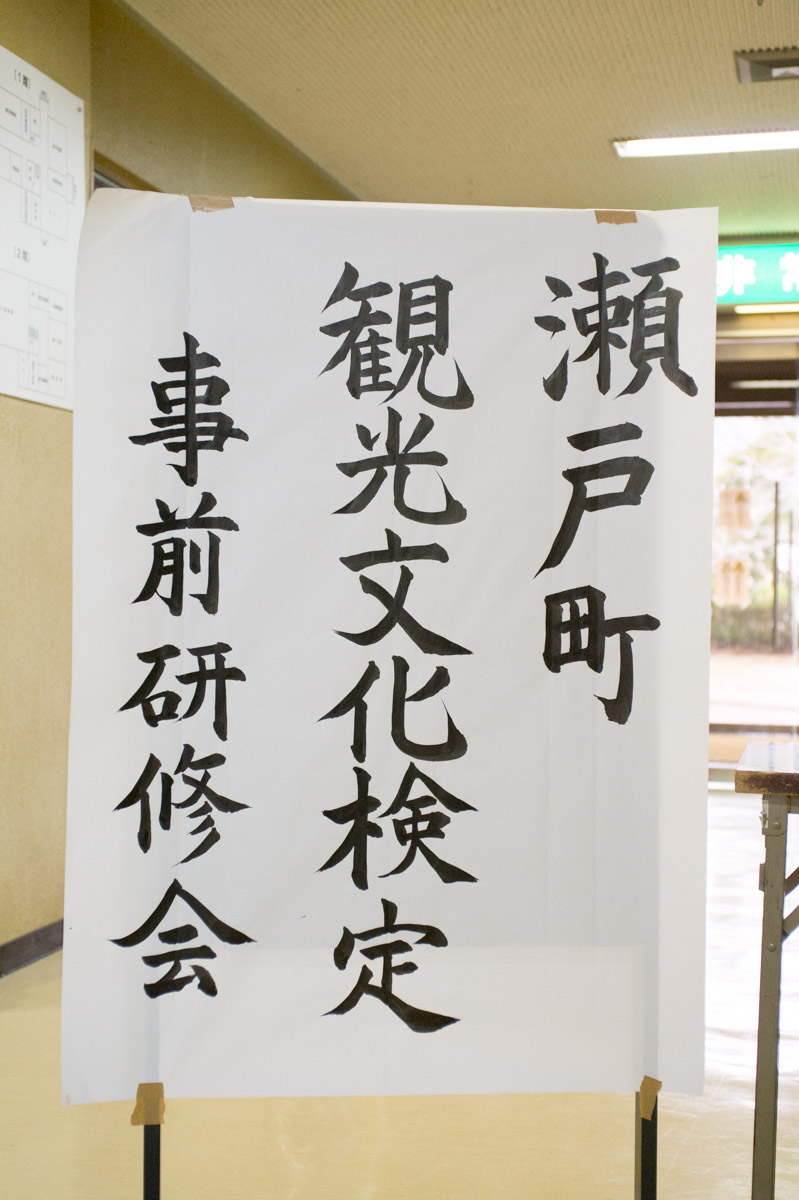 瀬戸町
観光文化検定
事前研修会
非常
[1階]
[2階]